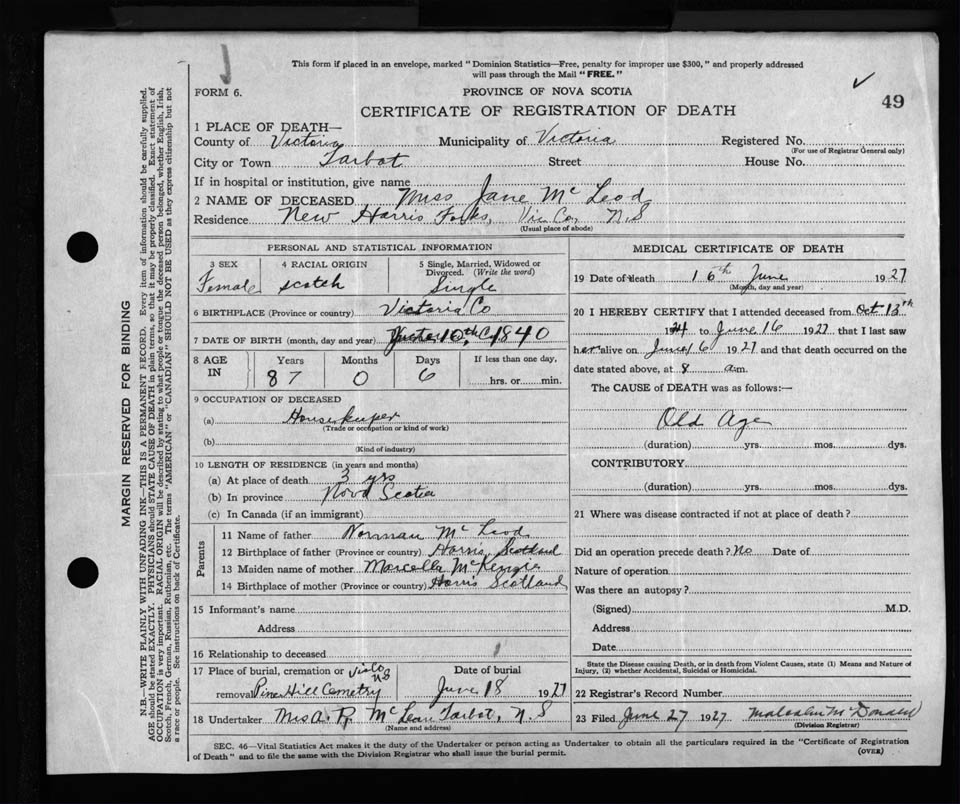 This form if placed in an envelope, marked "Dominion Statistics—Free, penalty for improper use $300," and properly addressed
will pass through the Mail "FREE."
FORM 6.
PROVINCE OF NOVA SCOTIA
49
CERTIFICATE OF REGISTRATION OF DEATH
1 PLACE OF DEATH—
County of Victoria Municipality of Victoria Registered No.
(For use of Registrar General only)
City or Town Tarbot Street House No.
If in hospital or institution, give name
2 NAME OF DECEASED Miss Jane McLeod
Residence New Harris Forks, Vic Co, N.S
(Usual place of abode)
PERSONAL AND STATISTICAL INFORMATION
3 SEX
Female
4 RACIAL ORIGIN
scotch
5 Single, Married, Widowed or
Divorced. (Write the word)
Single
6 BIRTHPLACE (Province or country) Victoria Co
7 DATE OF BIRTH (month, day and year) 10th 1840
8 AGE
IN
Years
87
Months
0
Days
6
If less than one day,
hrs. or min.
9 OCCUPATION OF DECEASED
(a) Housekeeper
(Trade or occupation or kind of work)
(b)
(Kind of industry)
10 LENGTH OF RESIDENCE (in years and months)
(a) At place of death 3 yrs
(b) In province Nova Scotia
(c) In Canada (if an immigrant)
Parents
11 Name of father Norman McLeod
12 Birthplace of father (Province or country) Harris, Scotland
13 Maiden name of mother Marcella McKenzie
14 Birthplace of mother (Province or country) Harris Scotland
15 Informant's name
Address
16 Relationship to deceased
17 Place of burial, cremation or
removal Pine Hill Cemetry
Date of burial
June 18 1927
18 Undertaker Mrs A. R. McLean Tarbot, N.S
(Name and address)
MEDICAL CERTIFICATE OF DEATH
19 Date of death 16th June 1927
(Month, day and year)
20 I HEREBY CERTIFY that I attended deceased from Oct 13th
1924 to June 16 1927 that I last saw
her alive on June 16 1927 and that death occurred on the
date stated above, at 8 a.m.
The CAUSE of DEATH was as follows:—
Old Age
(duration) yrs. mos. dys.
CONTRIBUTORY
(duration) yrs. mos. dys.
21 Where was disease contracted if not at place of death?
Did an operation precede death? No Date of
Nature of operation
Was there an autopsy?
(Signed) M.D.
Address
Date
State the Disease causing Death, or in death from Violent Causes, state (1) Means and Nature of
Injury, (2) whether Accidental, Suicidal or Homicidal.
22 Registrar's Record Number
23 Filed June 27 1927 Malcolm McDonald
(Division Registrar)
SEC. 46—Vital Statistics Act makes it the duty of the Undertaker or person acting as Undertaker to obtain all the particulars required in the "Certificate of Registration
of Death" and to file the same with the Division Registrar who shall issue the burial permit.
(OVER)
MARGIN RESERVED FOR BINDING
N.B.—WRITE PLAINLY WITH UNFADING INK—THIS IS A PERMANENT RECORD. Every item of information should be carefully supplied.
AGE should be stated EXACTLY. PHYSICIANS should STATE CAUSE OF DEATH in plain terms, so that it may be properly classified. Exact statement of
OCCUPATION is very important. RACIAL ORIGIN will be described by stating to what people or tongue the deceased person belonged, whether English, Irish,
Scotch, French, German, Russian, Ruthenian, etc. The terms "AMERICAN" or "CANADIAN" SHOULD NOT BE USED as they express citizenship but not
a race or people. See instructions on back of Certificate.